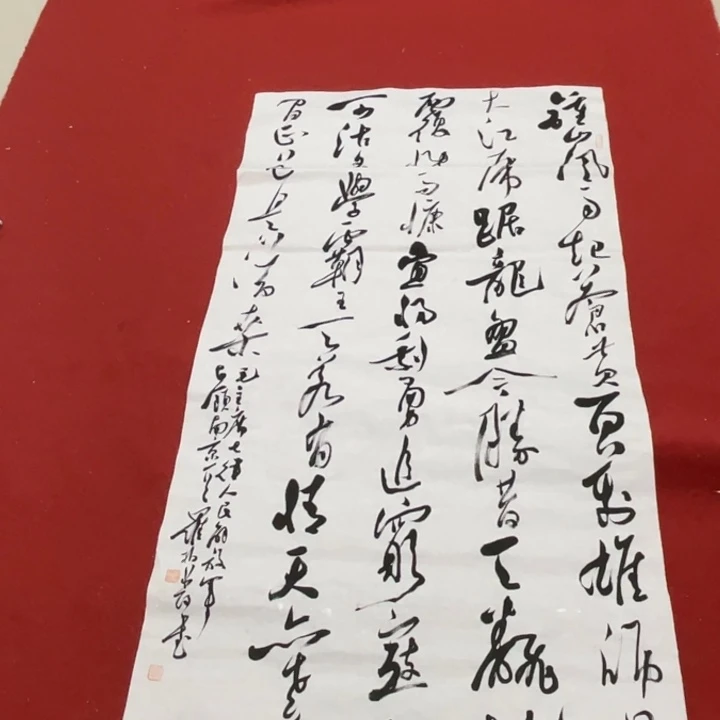 鍾山風雨起蒼黄百萬雄師
大江虎踞龍盤今勝昔天翻
覆慨而慷宜將剩勇追窮寇
可沽名學霸王天若有情天亦老
間正道是滄桑
毛主席七律人民解放軍
占領南京一首 羅
書